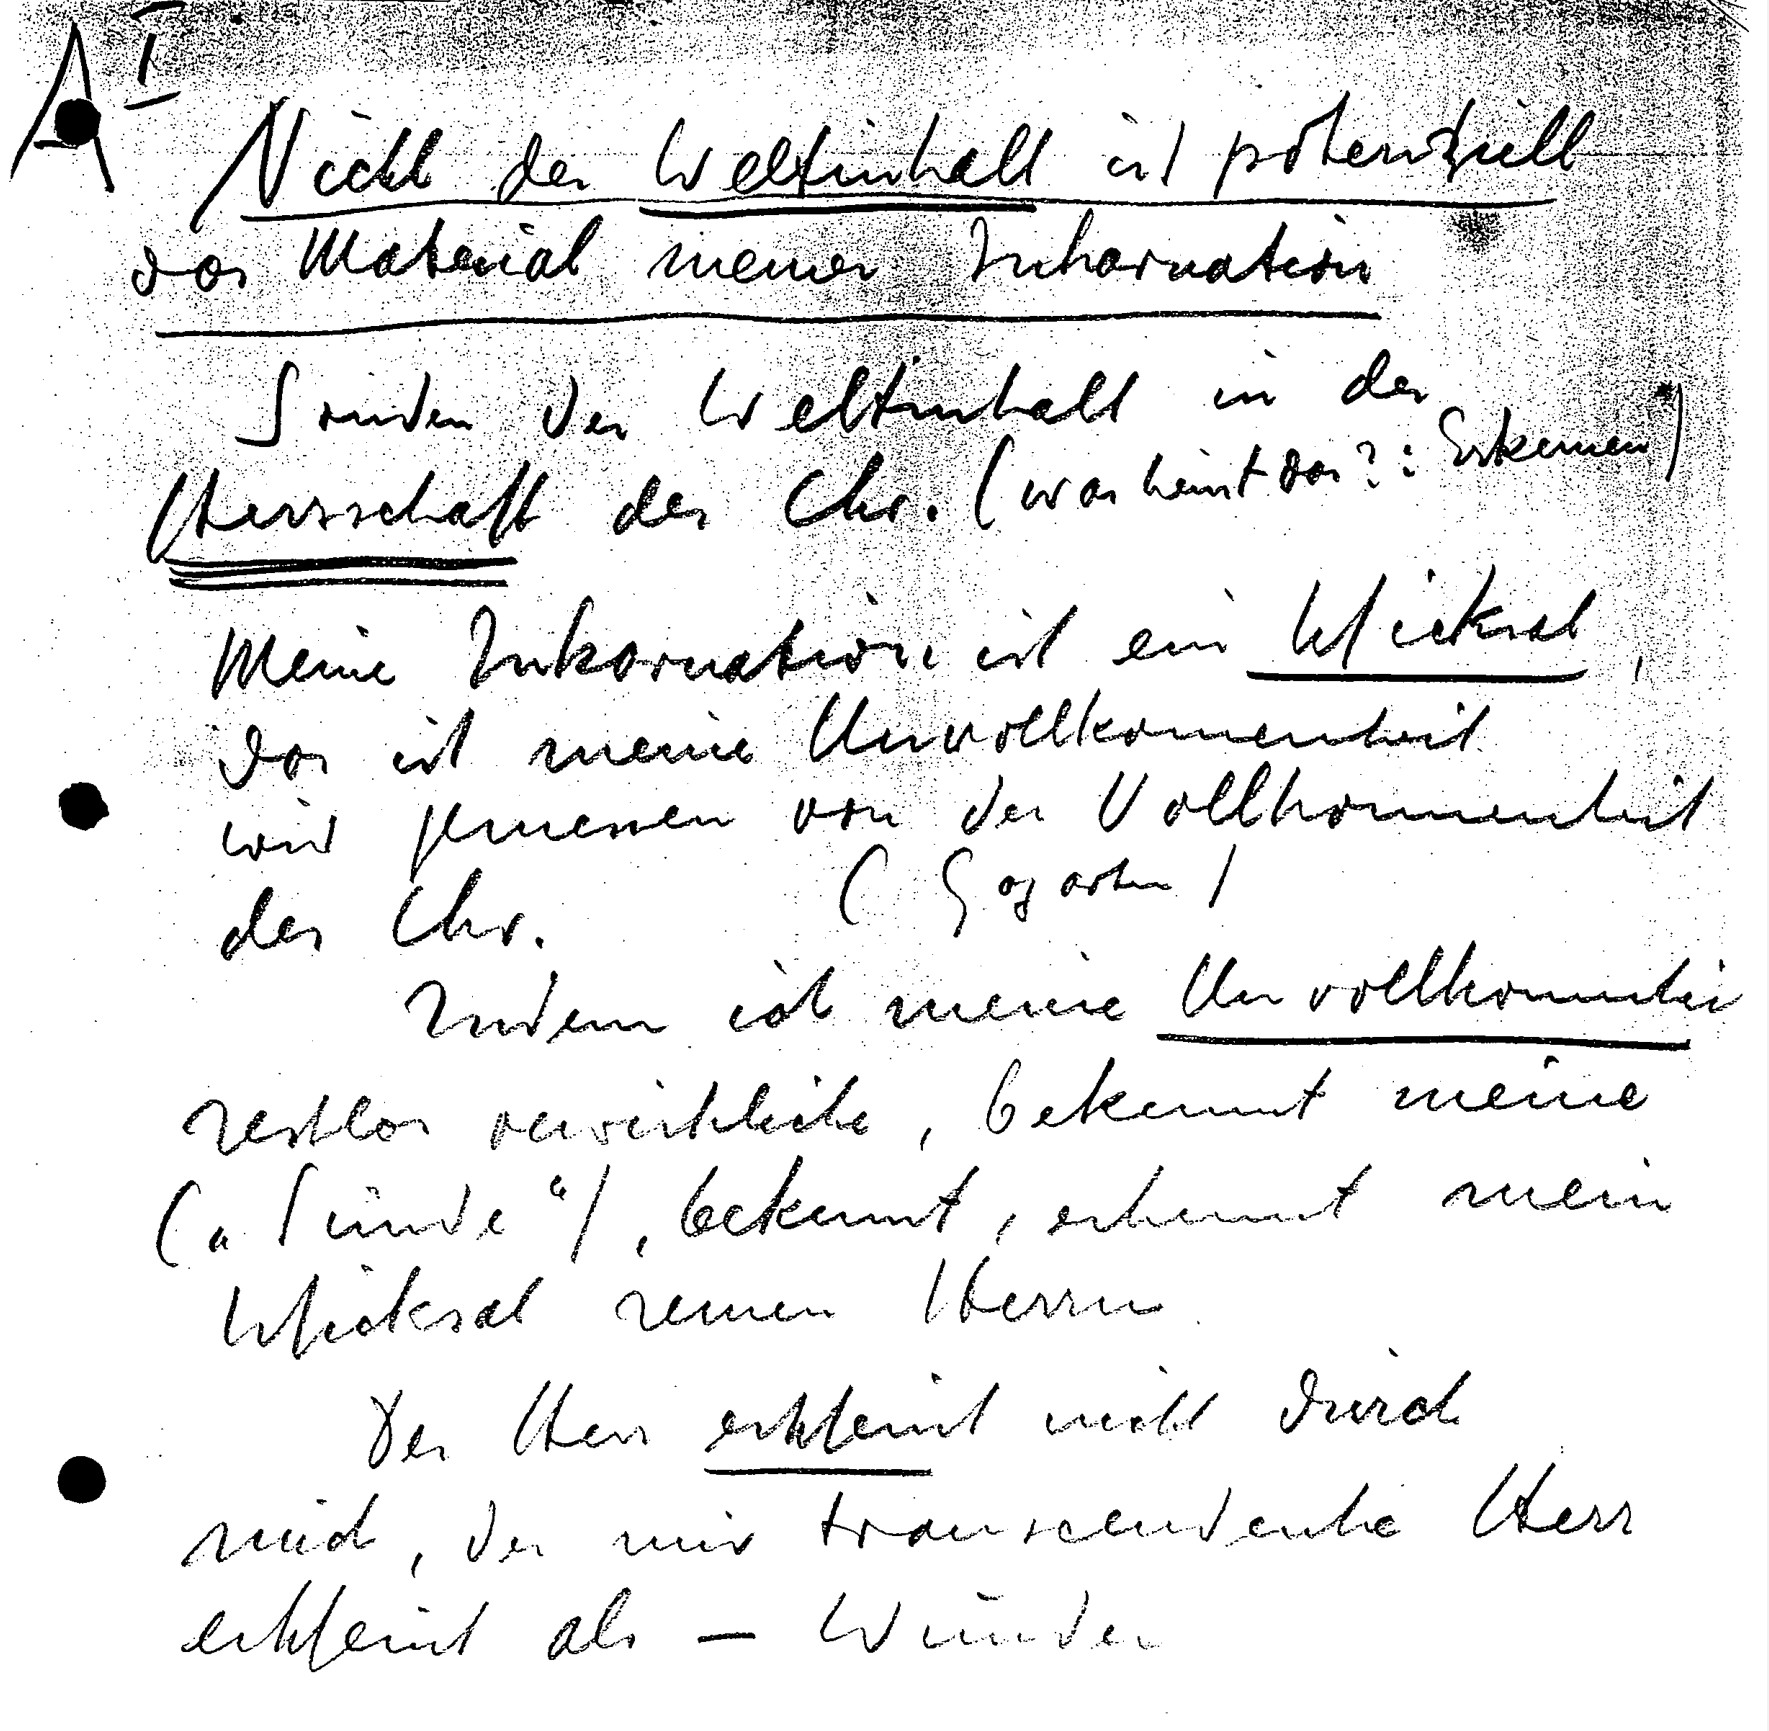 A I
Nicht der Weltinhalt ist potentiell
das Material meiner Inkarnation
Sondern der Weltinhalt in der
Herrschaft des Chr. (was heisst das?: Erkennen *)
Meine Inkarnation ist ein Schicksal,
das ist meine Unvollkommenheit
wird gemessen von der Vollkommenheit
des Chr. (Gogarten)
Indem ich meine Unvollkommenhei
restlos verwirkliche, bekennt meine
(„Sünde“), bekennt, erkennt mein
Schicksal seinen Herrn
Der Herr erscheint nicht durch
mich, der mir transcendente Herr
erscheint als – Wunder